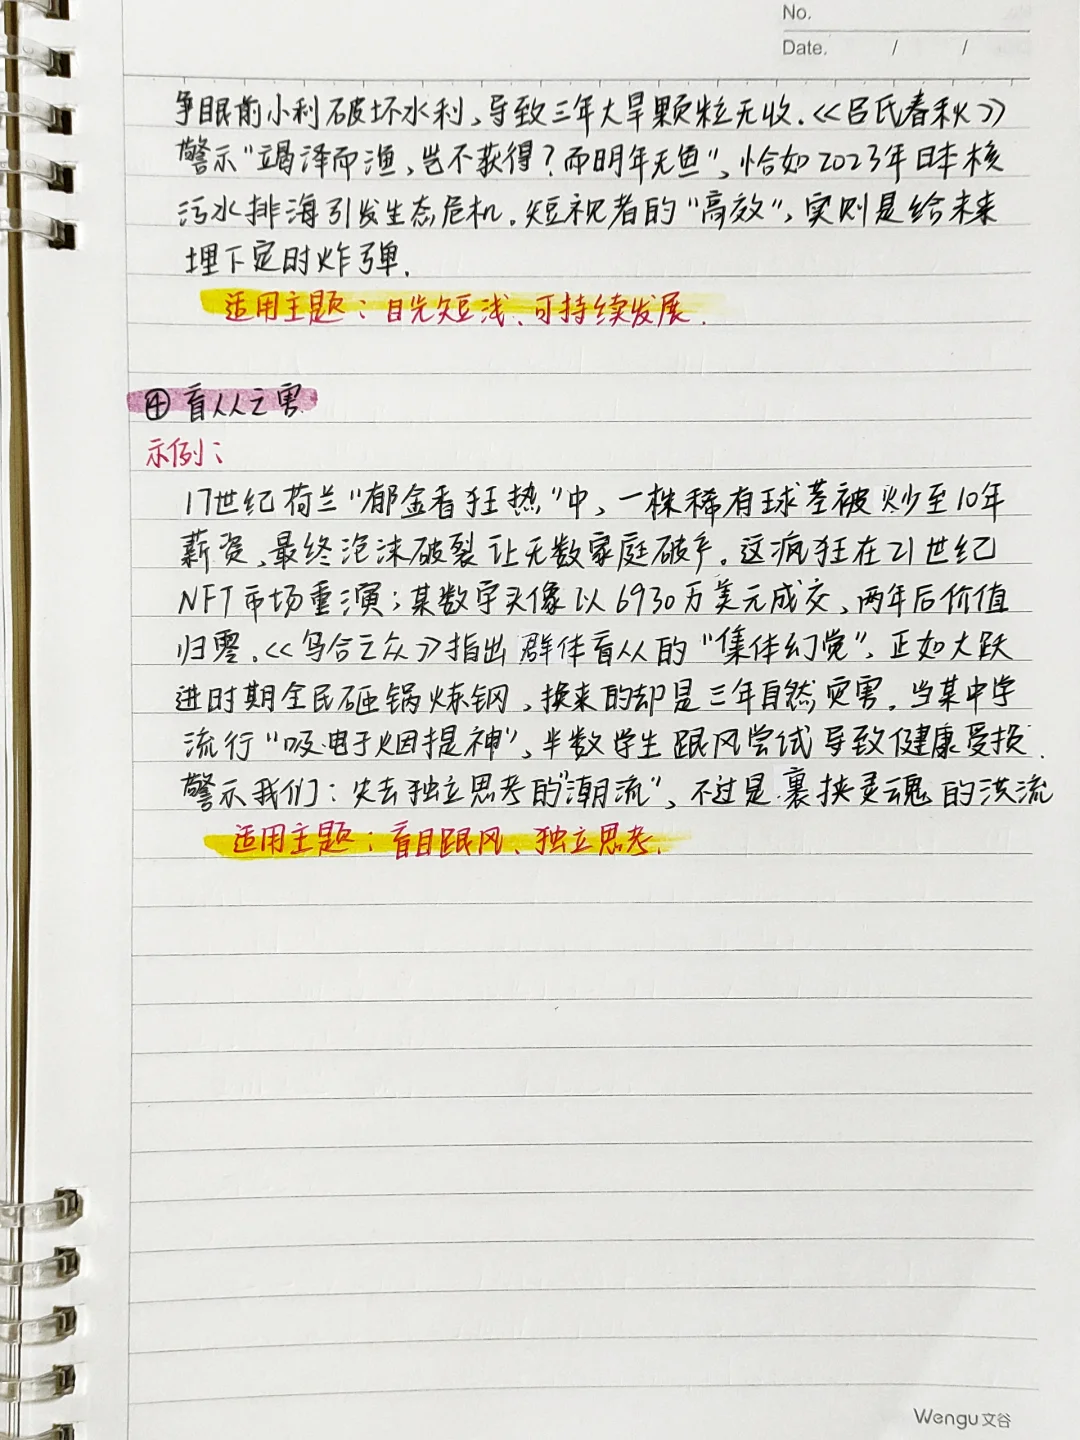 No.
Date. / /
争眼前小利破坏水利、导致三年大旱颗粒无收.《吕氏春秋》
警示"竭泽而渔,岂不获得?而明年无鱼",恰如2023年日本核
污水排海引发生态危机.短视者的"高效",实则是给未来
埋下定时炸弹.
适用主题:目光短浅、可持续发展.
④盲从之害
示例:
17世纪荷兰"郁金香狂热"中,一株稀有球茎被炒至10年
薪资、最终泡沫破裂让无数家庭破产。这疯狂在21世纪
NFT市场重演;某数字头像以6930万美元成交、两年后价值
归零.《乌合之众》指出群体盲从的"集体幻觉",正如大跃
进时期全民砸锅炼钢,换来的却是三年自然灾害.当某中学
流行"吸电子烟提神",半数学生跟风尝试导致健康受损.
警示我们:失去独立思考的"潮流",不过是裹挟灵魂的洪流
适用主题:盲目跟风、独立思考.
Wengu文谷